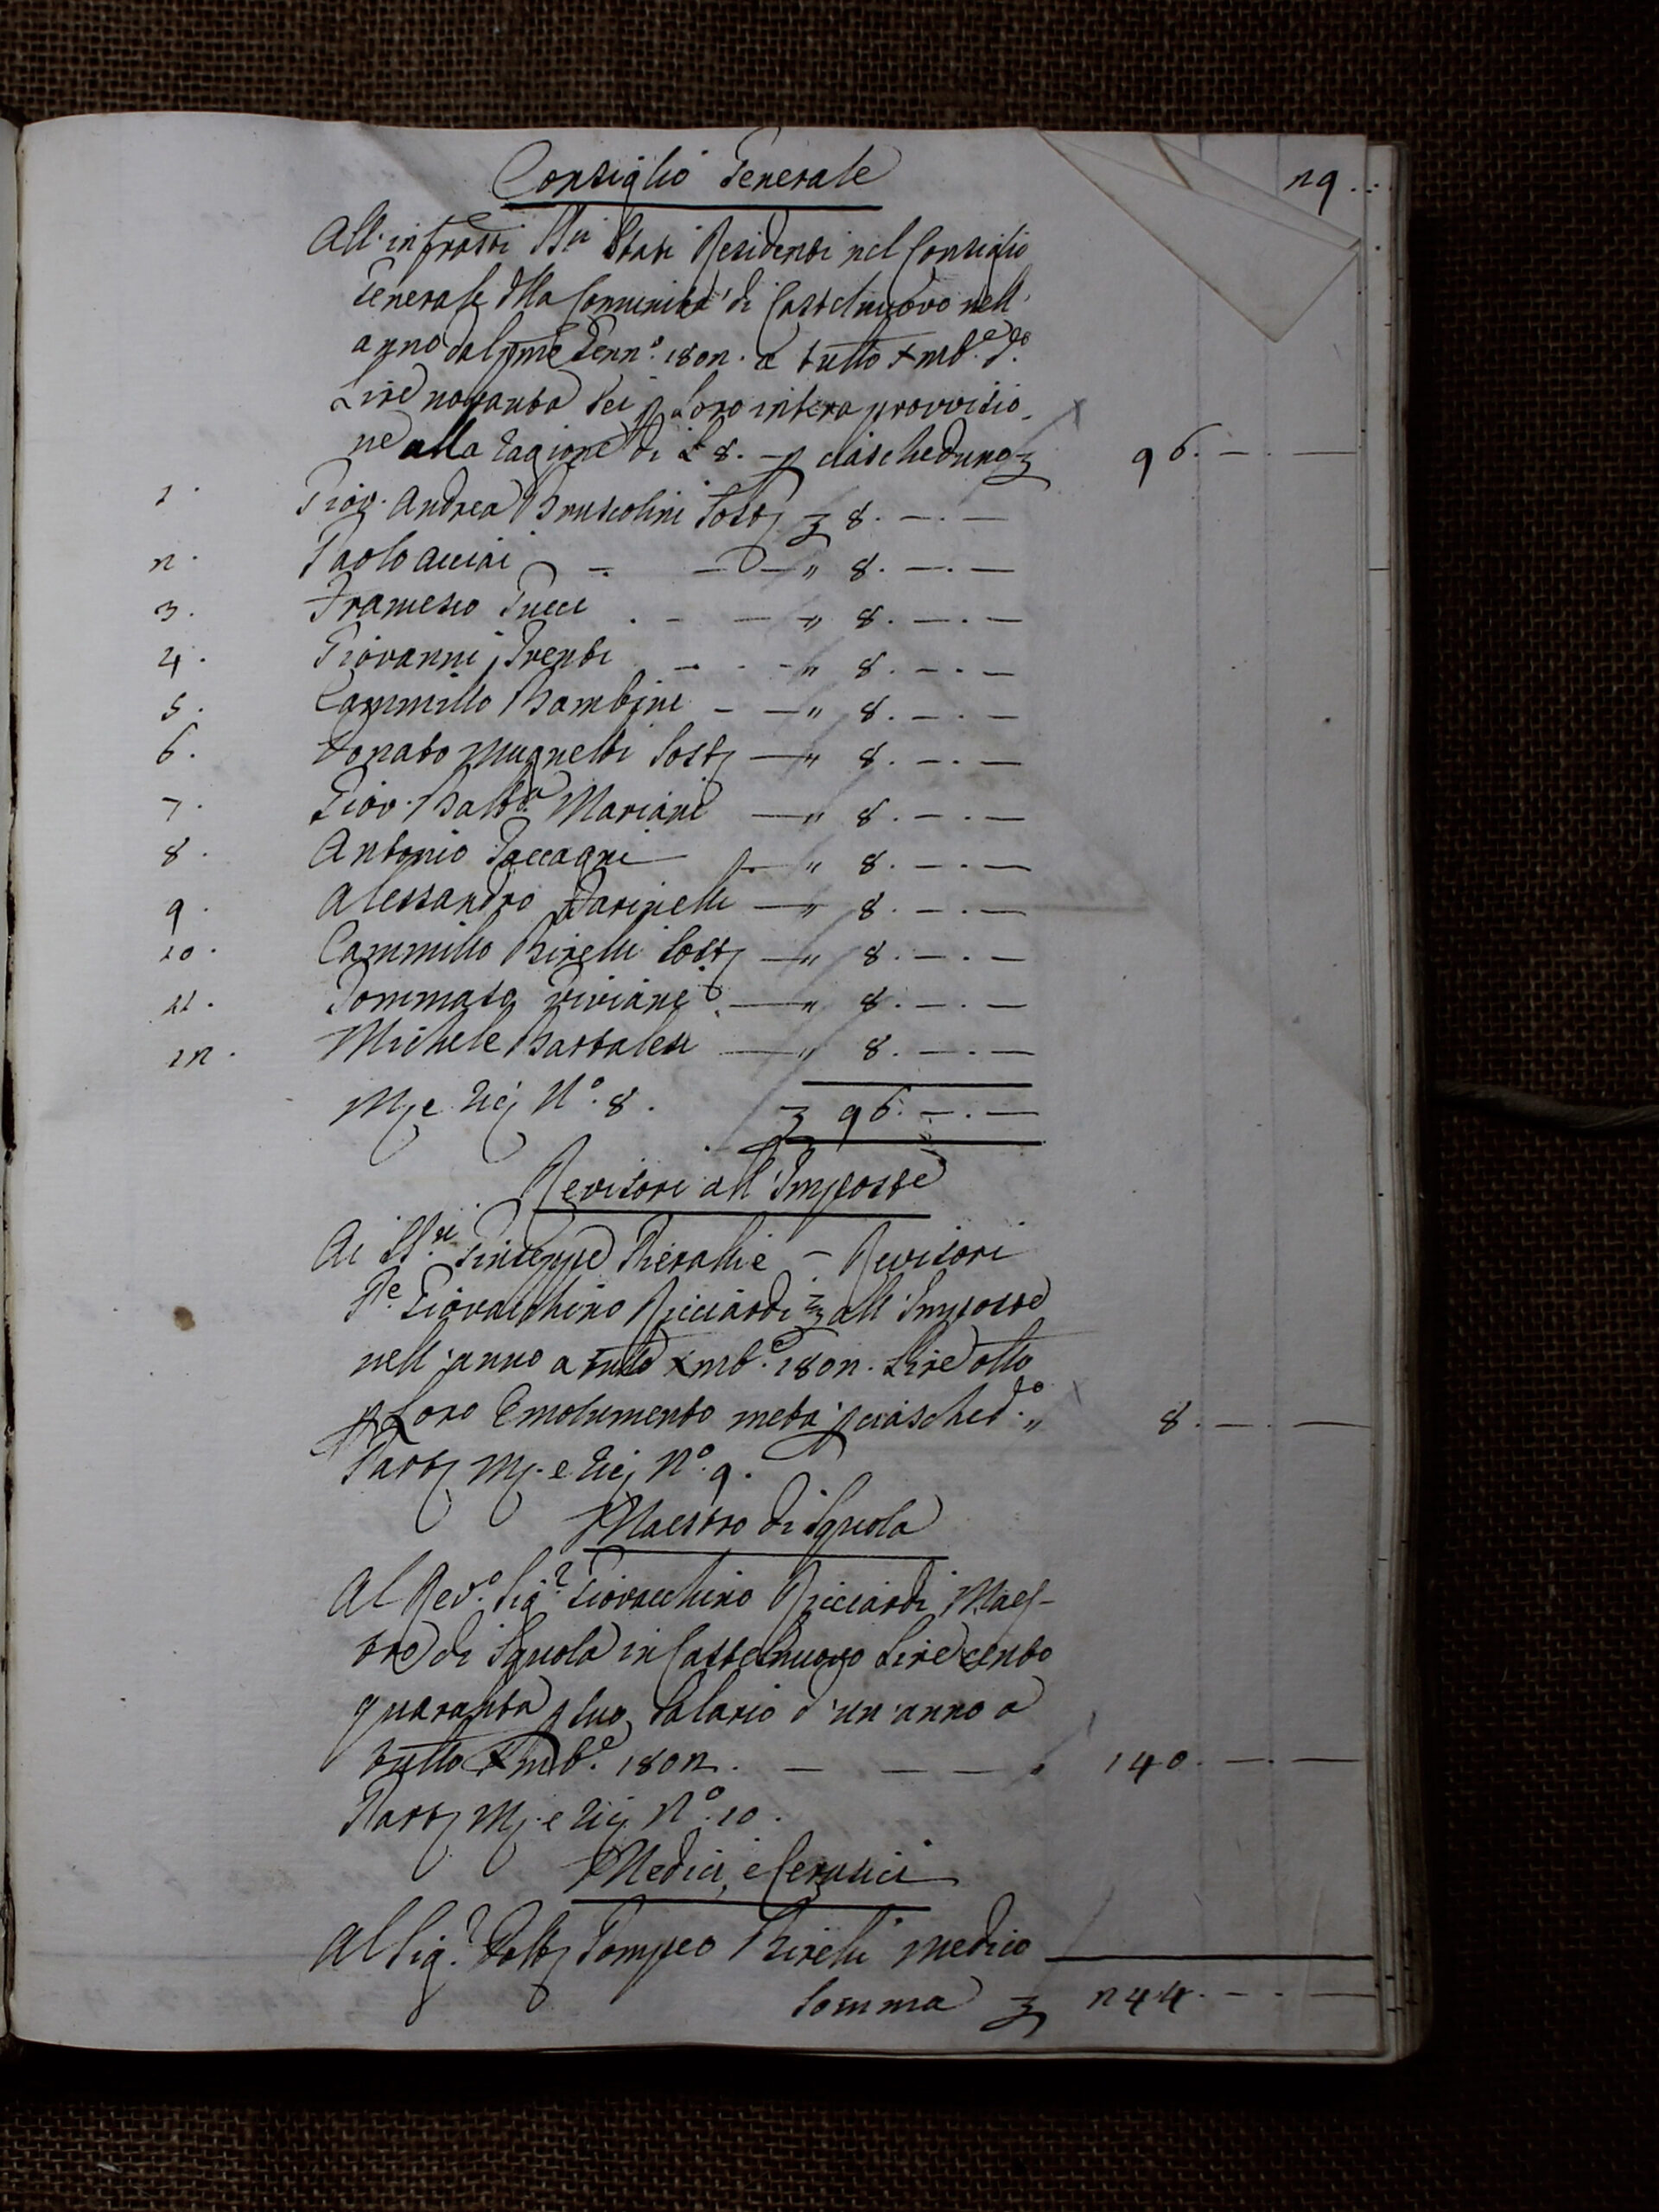 29.
Consiglio Generale
All'infratti SS.ri Stati Residenti nel Consiglio
Generale dlla Comunità di Castelnuovo nell'
anno dal pme Genn.o 1802. a tutto Xmb.e d.o
Lire novanta sei p Loro intera provvisio-
ne alla ragione di £ 8. - p ciascheduno 96. -. -
1. Giov. Andrea Bruscolini 8. -. -
2. Paolo Acciai - - - " 8. -. -
3. Francesco Pucci . - - " 8. -. -
4. Giovanni Trenti - . - " 8. -. -
5. Cammillo Bambini - - " 8. -. -
6. Donato Mugnetti - " 8. -. -
7. Giov. Batta Mariani - " 8. -. -
8. Antonio Paccagni - " 8. -. -
9. Alessandro Farinelli - " 8. -. -
10. Cammillo Birelli - " 8. -. -
11. Tommaso Viviani - " 8. -. -
12. Michele Bartalesi - " 8. -. -
N.o 8. 96. -. -
Revisori all'Imposte
Ai SS.ri Giuseppe Pieralli e - Revisori
P.e Giovacchino Ricciardi all'Imposte
nell'anno a tutto Xmb.e 1802. Lire otto
p Loro Emolumento metà p ciasched.o " 8. -. -
N.o 9.
Maestro di Squola
Al Rev.o Sig.r Giovacchino Ricciardi Maes-
tro di Squola in Castelnuovo Lire cento
quaranta p suo Salario d'un'anno a
tutto Xmb.e 1802. - - - 140. -. -
N.o 10.
Medici, e Cerusici
Al Sig.r Dott. Pompeo Birelli Medico
Somma 244. -. -